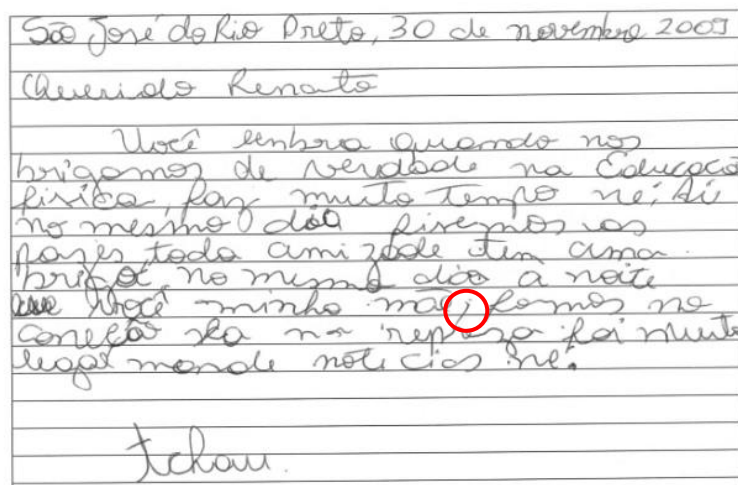 São José do Rio Preto, 30 de novembro 2009
Querido Renato
Você lembra quando nos
brigamos de verdade na Educaçaõ
fisica, faz muito tempo né; Ai
no mesmo dia fizemos as
pazes toda amizade tem uma
briga, no mesmo dia a noite
você minha mãe, fomos no
la na repreza foi muito
legal mande noticias né.
tchau.